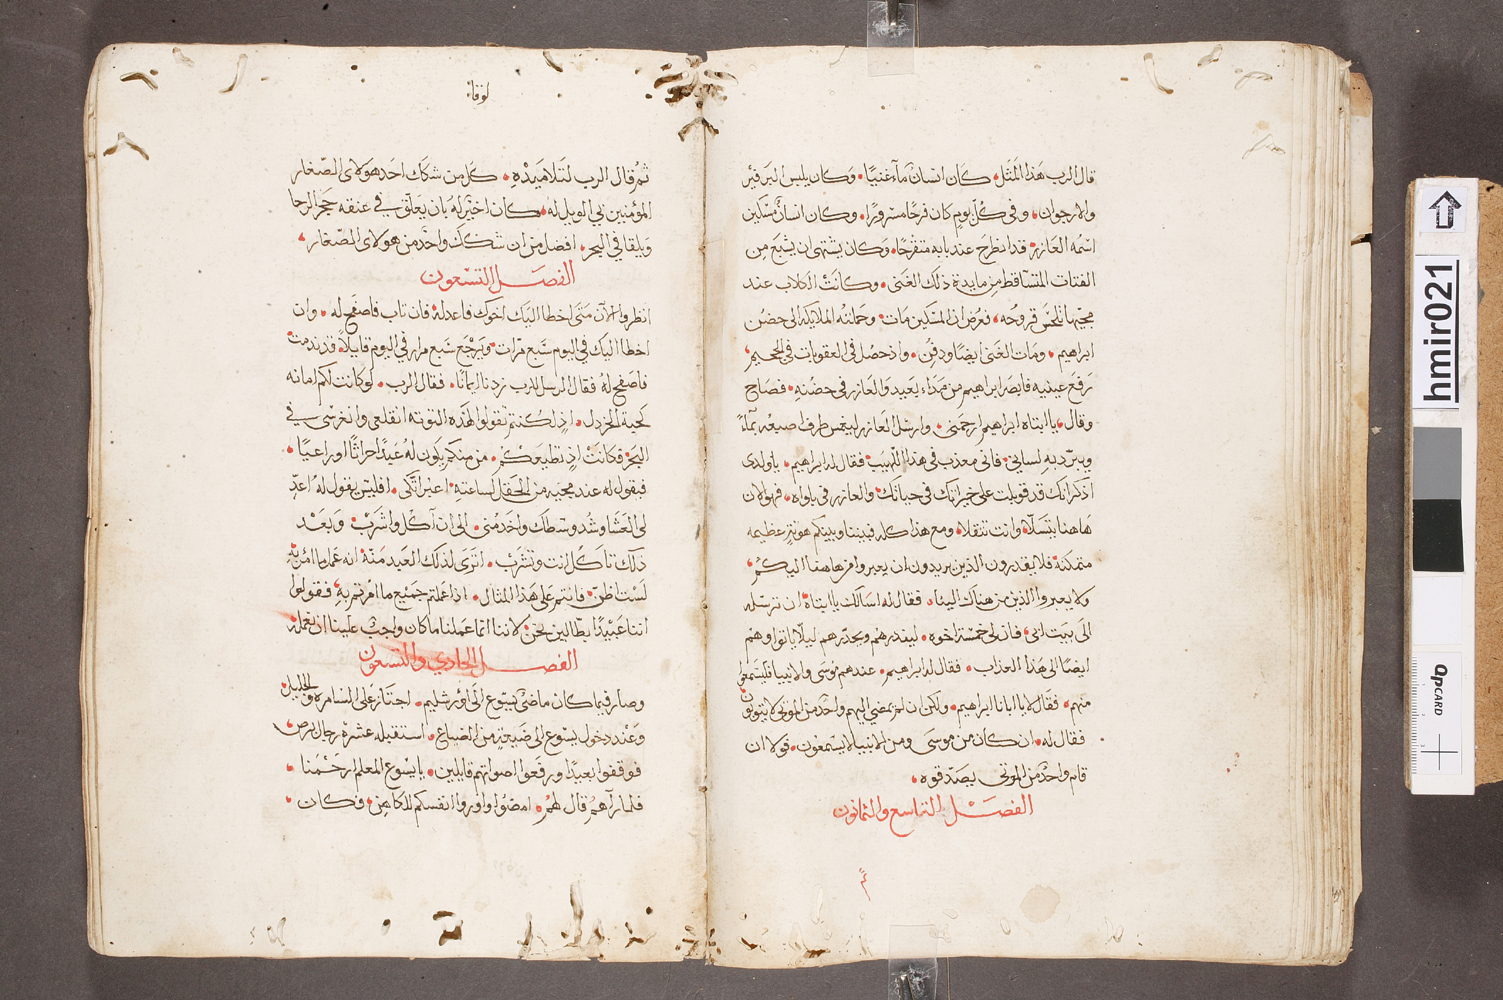 قال الرب هذا المثل كان انسان ما غنيًا وكان يلبس البرفير
والارجوان وفي كل يوم كان فرحًا مسرورًا وكان انسان مسكين
اسمه العازر قد انطرح عند بابه متقرحًا وكان يشتهي ان يشبع من
الفتات المتساقط من مايدة ذلك الغني وكانت الكلاب عند
مجيها تلحس قروحه فعرض ان المسكين مات وحملته الملايكة الى حضن
ابراهيم ومات الغني ايضًا ودفن واذ حصل في العقوبات في الجحيم
رفع عينيه فابصر ابراهيم من مداء بعيد والعازر في حضنه فصاح
وقال يا ابتاه ابراهيم ارحمني وارسل العازر ليغمس طرف اصبعه بماءً
ويبرد به لساني فاني معذب في هذا اللهيب فقال له ابراهيم يا ولدي
اذكر انك قد قوبلت على خيراتك في حياتك والعازر في بلواه فهو الان
هاهنا يتسلا وانت تتقلا ومع هذا كله فبيننا وبينكم هوتة عظيمه
متمكنة فلا يقدرون الذين يريدون ان يعبروا من هاهنا اليكم
ولا يعبروا الذين من هناك الينا فقال له اسالك يا ابتاه ان ترسله
الى بيت ابي فان لي خمسة اخوه لينذرهم ويحذرهم ليلًا ياتوا وهم
ايضًا الى هذا العذاب فقال له ابراهيم عندهم موسى والانبيا فليسمعوا
منهم فقال لا يا ابانا ابراهيم ولكن ان لم يمضي اليهم واحد من الموتى لا يتوبون
فقال له ان كان من موسى ومن الانبيا لا يسمعون فولا ان
قام واحد من الموتى يصدقوه
الفصل التاسع والثمانون
لوقا
ثم قال الرب لتلاميذه كل من شكك احد هولاي الصغار
المؤمنين بي الويل له كان اخير له بان يعلق في عنقه حجر الرحا
ويلقا في البحر افضل من ان شكك واحد من هولاي الصغار
الفصل التسعون
انظروا الآن متى اخطا اليك اخوك فاعدله فان تاب فاصفح له وان
اخطا اليك في اليوم سبع مرات ويرجع سبع مرار في اليوم قايلًا قد ندمت
فاصفح له فقال الرسل للرب زدنا ايمانًا فقال الرب لو كانت لكم امانه
كحبة الخردل اذ لكنتم تقولوا لهذه التوته انقلعي وانغرسي في
البحر فكانت اذ تطيعكم من منكم يكون له عبدًا حراثًا او راعيًا
فيقول له عند مجيه من الحقل لساعته اعبر اتكي افليس يقول له اعد
لي العشا وشد وسطك واخدمني الى ان آكل واشرب وبعد
ذلك تاكل انت وتشرب اترى لذلك العبد منة انه عمل ما امر به
لست اظن فانتم على هذا المثال اذا عملتم جميع ما امرتم به فقولوا
اننا عبيدًا بطالين نحن لاننا انما عملنا ما كان واجب علينا ان نعمله
الفصل الحادي والتسعون
وصار فيما كان ماضي يسوع الى اورشليم اجتاز على السامره والجليل
وعند دخول يسوع الى ضيعة من الضياع استقبله عشرة رجال برص
فوقفوا بعيدًا ورفعوا اصواتهم قايلين يا يسوع المعلم ارحمنا
فلما رآهم قال لهم امضوا واوروا انفسكم للكاهن فكان
hmir021
QpCARD